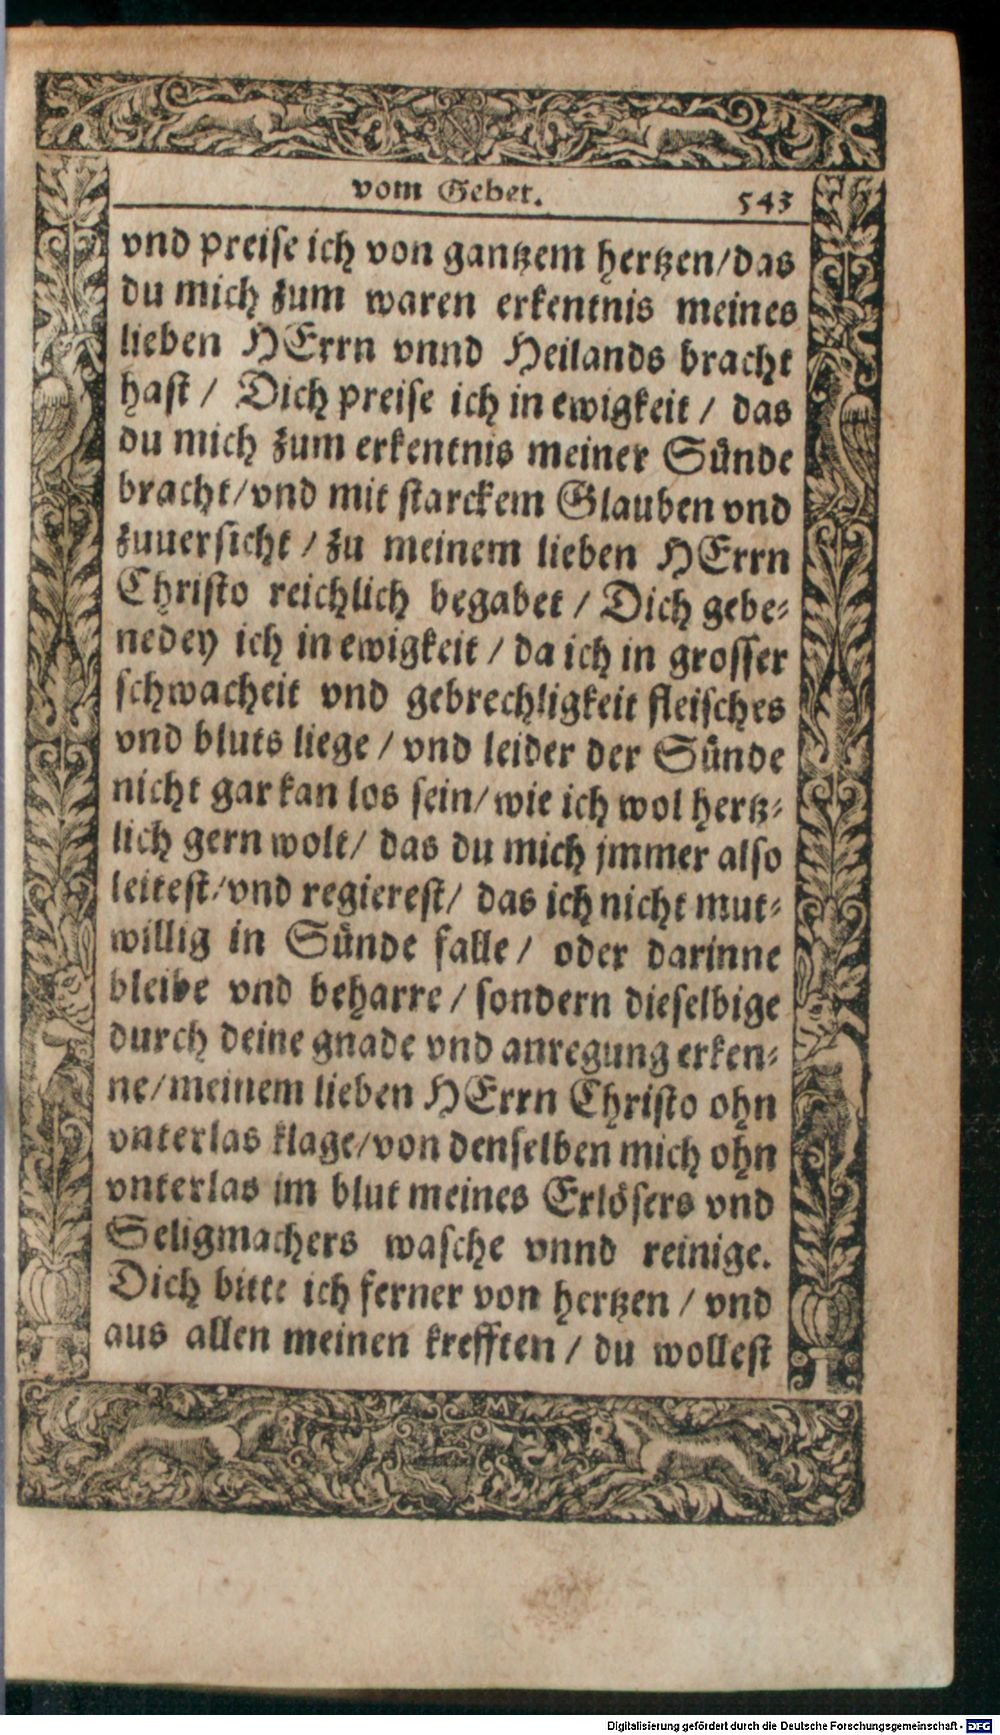 vom Gebet. 543
vnd preise ich von gantzem hertzen/das
du mich zum waren erkentnis meines
lieben HErrn vnnd Heilands bracht
hast / Dich preise ich in ewigkeit / das
du mich zum erkentnis meiner Sünde
bracht/vnd mit starckem Glauben vnd
zuuersicht / zu meinem lieben HErrn
Christo reichlich begabet / Dich gebe-
nedey ich in ewigkeit / da ich in grosser
schwacheit vnd gebrechligkeit fleisches
vnd bluts liege / vnd leider der Sünde
nicht gar kan los sein/ wie ich wol hertz-
lich gern wolt/ das du mich jmmer also
leitest/vnd regierest/ das ich nicht mut-
willig in Sünde falle / oder darinne
bleibe vnd beharre / sondern dieselbige
durch deine gnade vnd anregung erken-
ne/meinem lieben HErrn Christo ohn
vnterlas klage/von denselben mich ohn
vnterlas im blut meines Erlösers vnd
Seligmachers wasche vnnd reinige.
Dich bitte ich ferner von hertzen / vnd
aus allen meinen krefften / du wollest
Digitalisierung gefördert durch die Deutsche Forschungsgemeinschaft - DFG